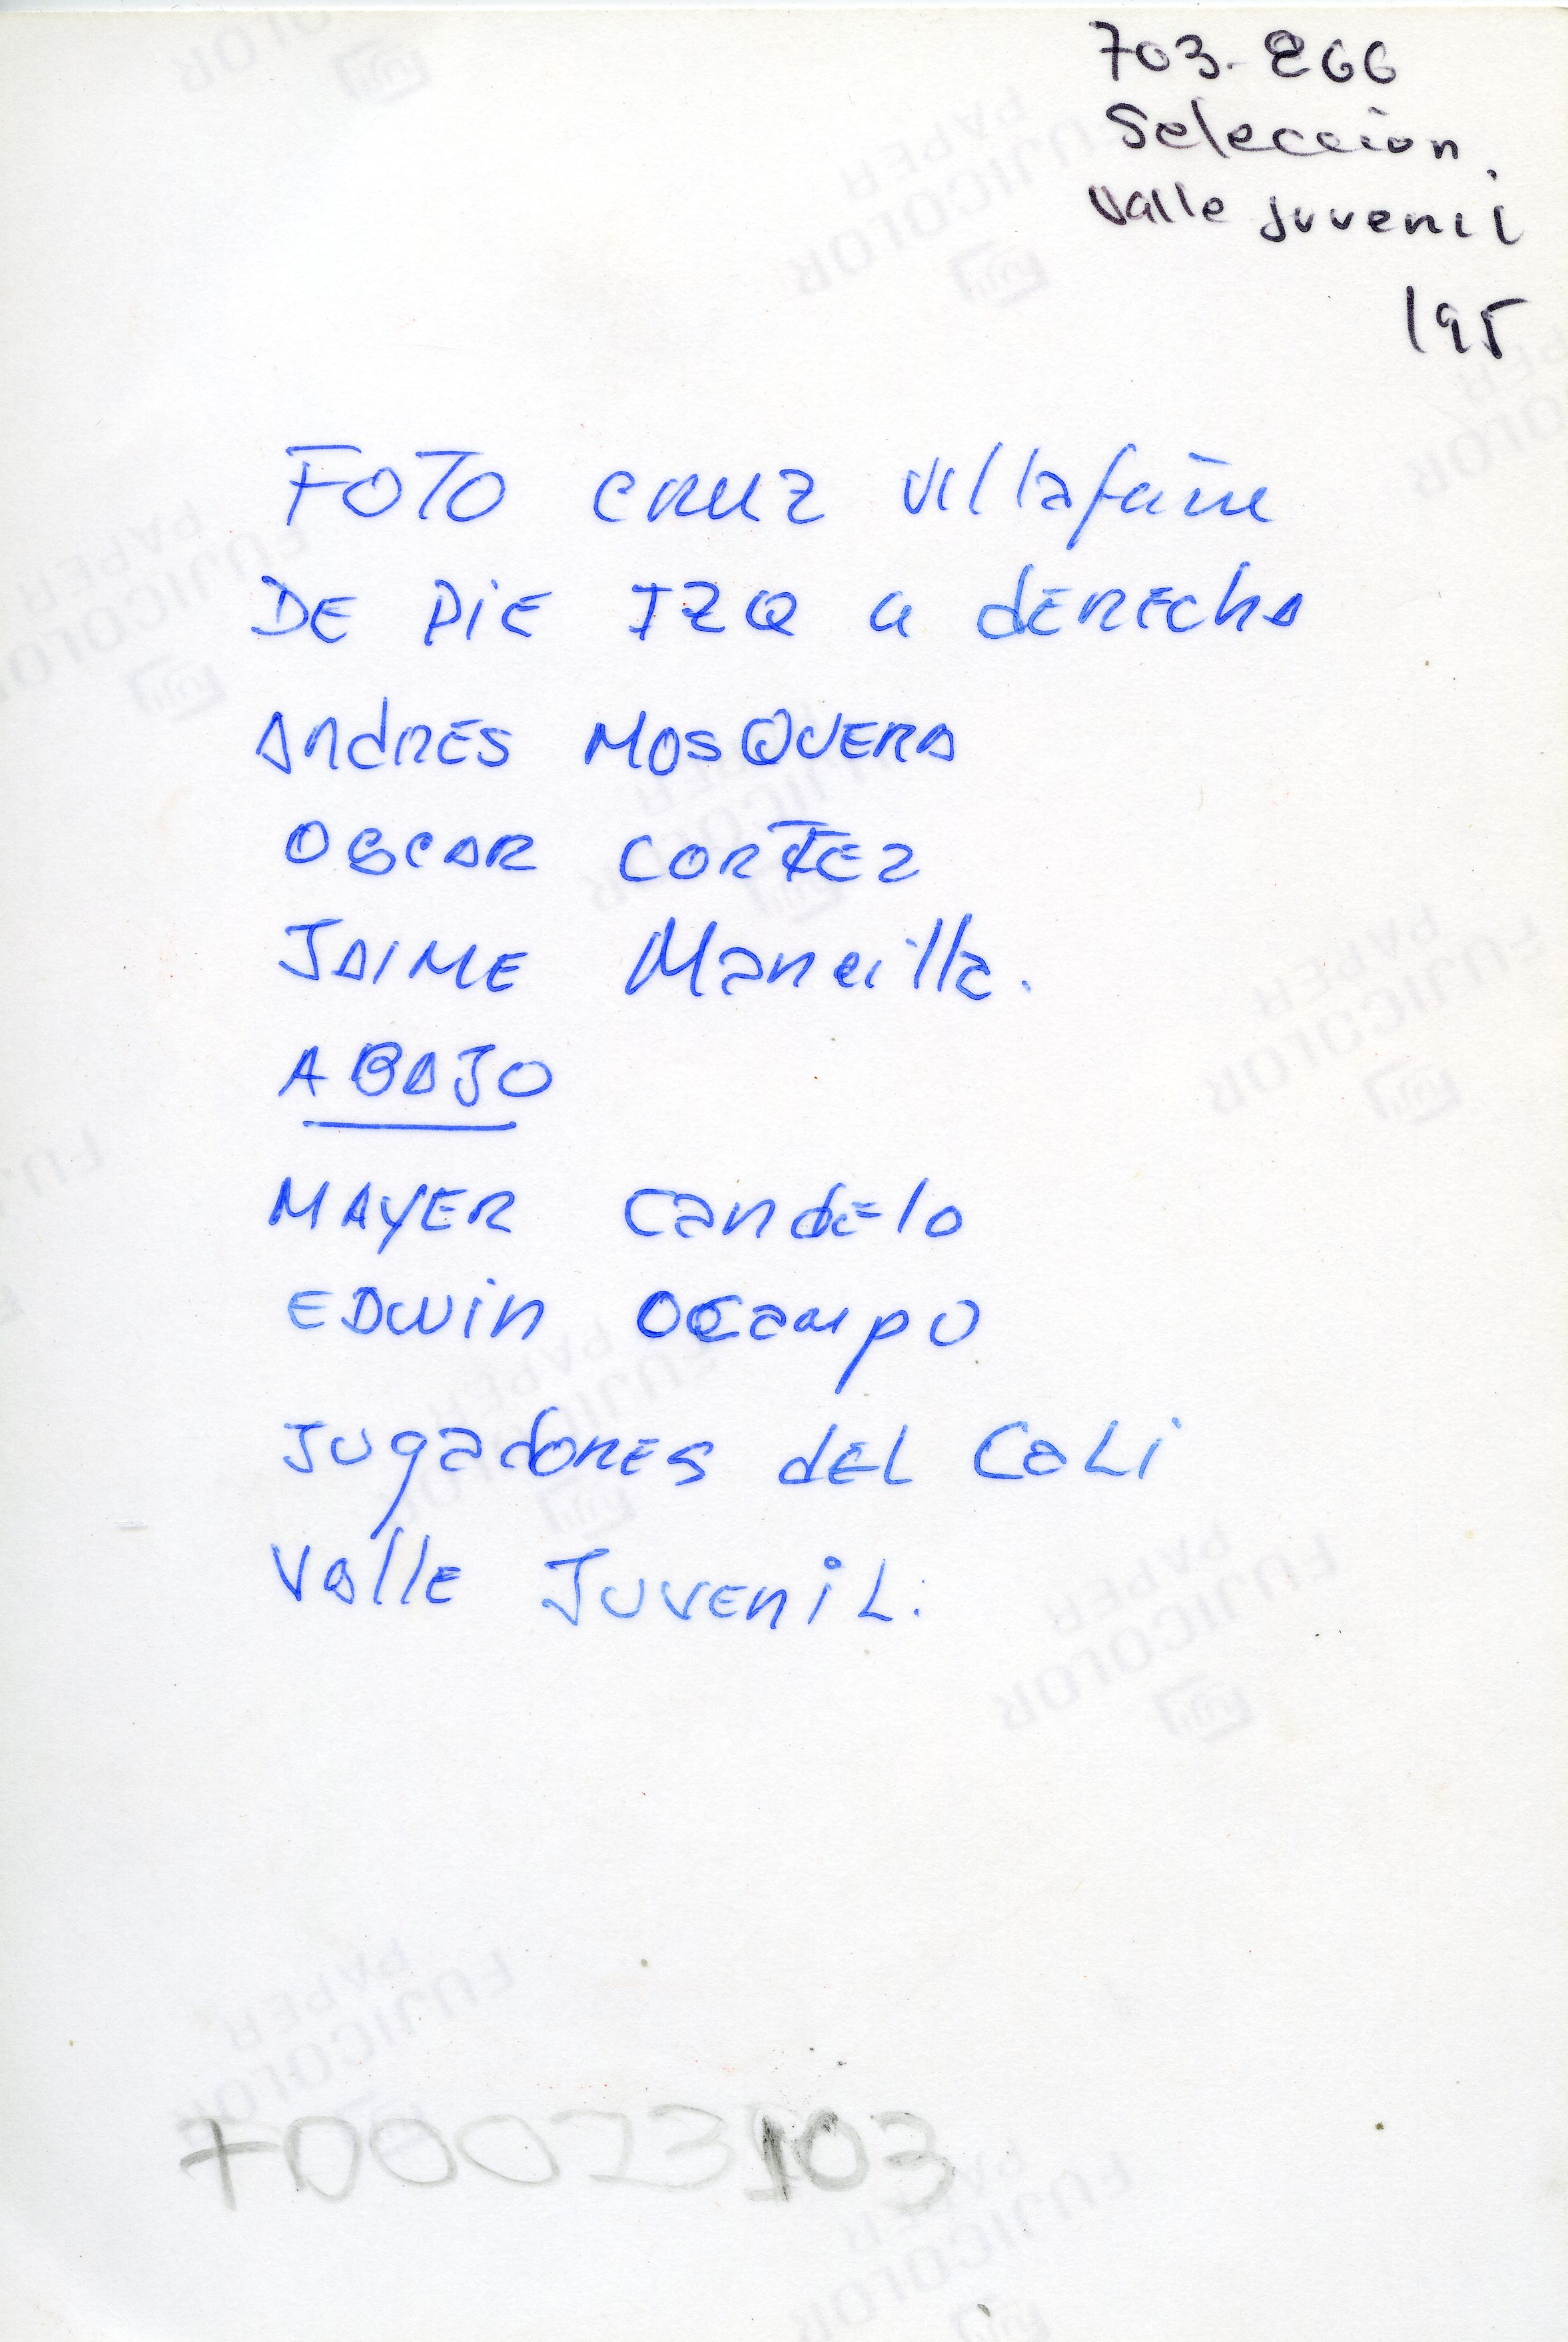 703-266
Selección
Valle juvenil
195
FOTO CRUZ Villafañe
DE PiE IZQ a dERECha
ANdRES MOSQUERA
OSCAR CORTEZ
JAIME Mancilla.
ABAJO
MAYER CandElo
EDwin Ocampo
JUgadorES dEL CaLi
VallE JUVEniL.
FUJICOLOR
PAPER